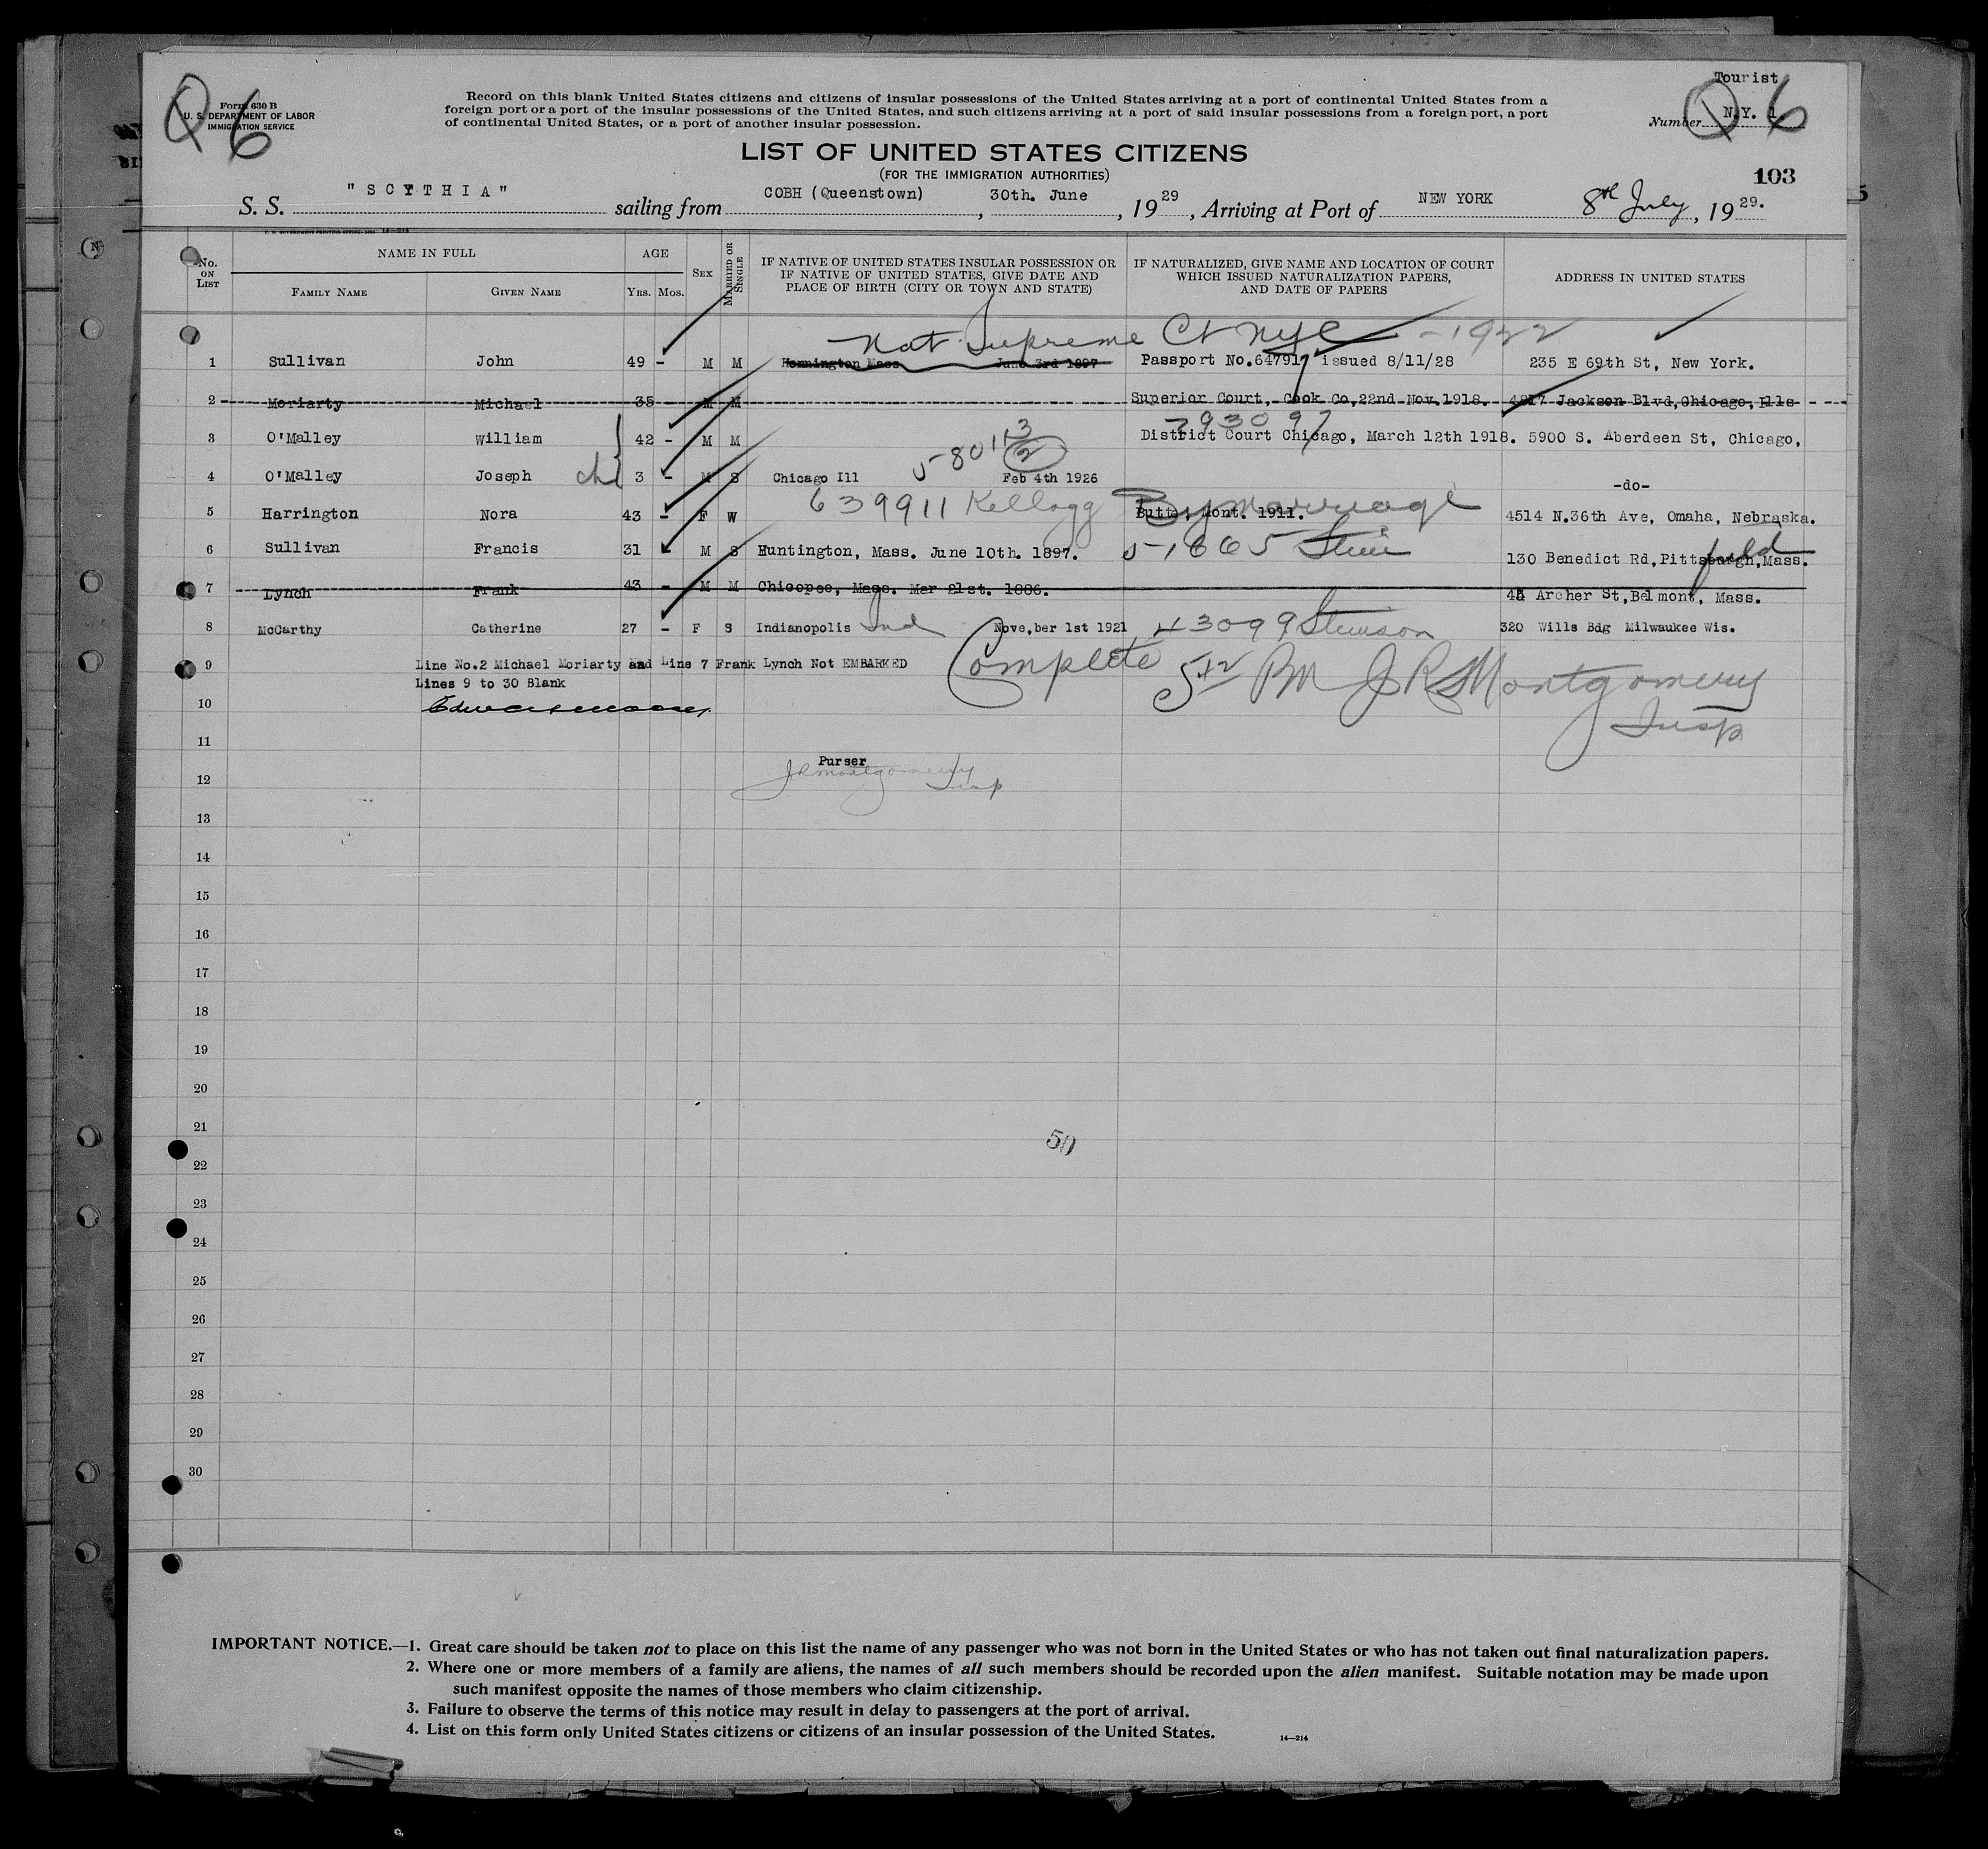 Tourist
Form 630 B
U. S. DEPARTMENT OF LABOR
IMMIGRATION SERVICE
Q6
Record on this blank United States citizens and citizens of insular possessions of the United States arriving at a port of continental United States from a
foreign port or a port of the insular possessions of the United States, and such citizens arriving at a port of said insular possessions from a foreign port, a port
of continental United States, or a port of another insular possession.
Number N.Y. 1
6
LIST OF UNITED STATES CITIZENS
(FOR THE IMMIGRATION AUTHORITIES)
103
S. S. "SCYTHIA" sailing from COBH (Queenstown), 30th. June, 1929, Arriving at Port of NEW YORK 8th July, 1929.
No. ON LIST
NAME IN FULL
FAMILY NAME GIVEN NAME
AGE
YRS. MOS.
SEX
MARRIED OR SINGLE
IF NATIVE OF UNITED STATES INSULAR POSSESSION OR
IF NATIVE OF UNITED STATES, GIVE DATE AND
PLACE OF BIRTH (CITY OR TOWN AND STATE)
IF NATURALIZED, GIVE NAME AND LOCATION OF COURT
WHICH ISSUED NATURALIZATION PAPERS,
AND DATE OF PAPERS
ADDRESS IN UNITED STATES
Nat Supreme Ct NYC - 1922
1 Sullivan John 49 - M M June 3rd 1897 Passport No.647917 issued 8/11/28 235 E 69th St, New York.
2 Moriarty Michael 35 - M M Superior Court, Cook Co,22nd Nov.1918. 4817 Jackson Blvd,Chicago,Ills
793097
3 O'Malley William 42 - M M District Court Chicago, March 12th 1918. 5900 S. Aberdeen St, Chicago,
580113
2
4 O'Malley Joseph ch 3 - M S Chicago Ill Feb 4th 1926 -do-
639911 Kellogg By marriage
5 Harrington Nora 43 - F W Butte, Mont. 1911. 4514 N.36th Ave, Omaha, Nebraska.
6 Sullivan Francis 31 M S Huntington, Mass. June 10th. 1897. 51665 130 Benedict Rd,Pittsburgh,Mass.
field
7 Lynch Frank 43 - M M Chicopee, Mass. Mar 21st. 1886. Archer St,Belmont, Mass.
8 McCarthy Catherine 27 - F S Indianopolis Ind Nove,ber 1st 1921 43099 Stimson 320 Wills Bdg Milwaukee Wis.
9 Line No.2 Michael Moriarty and Line 7 Frank Lynch Not EMBARKED
Lines 9 to 30 Blank
Complete 5 PM J R Montgomery
Insp
10
11
Purser
12 J R Montgomery Insp
13
14
15
16
17
18
19
20
21
50
22
23
24
25
26
27
28
29
30
IMPORTANT NOTICE.—1. Great care should be taken not to place on this list the name of any passenger who was not born in the United States or who has not taken out final naturalization papers.
2. Where one or more members of a family are aliens, the names of all such members should be recorded upon the alien manifest. Suitable notation may be made upon
such manifest opposite the names of those members who claim citizenship.
3. Failure to observe the terms of this notice may result in delay to passengers at the port of arrival.
4. List on this form only United States citizens or citizens of an insular possession of the United States.
14—214